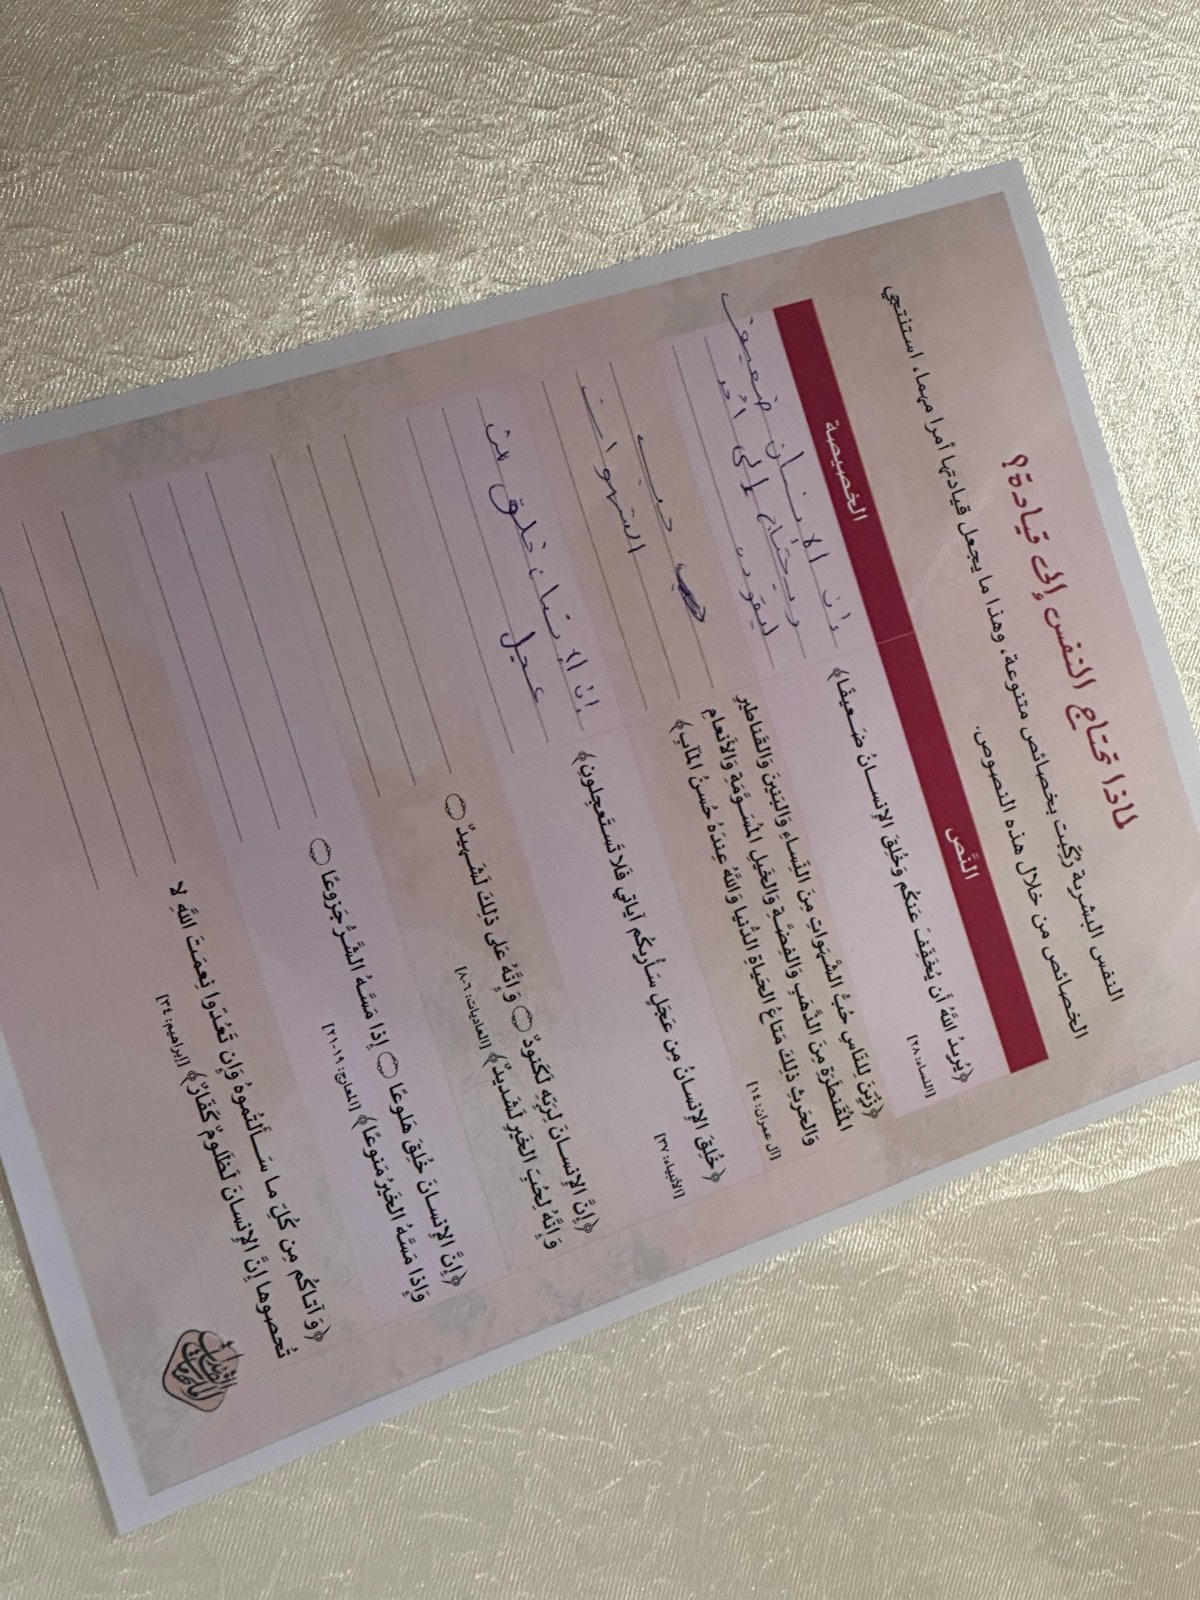 لماذا تحتاج النفس إلى قيادة؟
النفس البشرية رُكّبت بخصائص متنوعة، وهذا ما يجعل قيادتها أمرا مهما، استنتجي
الخصائص من خلال هذه النصوص.
النَّص
الخصيصة
﴿يُرِيدُ اللَّهُ أَن يُخَفِّفَ عَنكُم وَخُلِقَ الإِنسانُ ضَعيفًا﴾
[النساء: ٢٨]
إن الإنسان ضعيف
ويحتاج إلى أحد
ليقوده
﴿زُيِّنَ لِلنّاسِ حُبُّ الشَّهَواتِ مِنَ النِّساءِ وَالبَنينَ وَالقَناطيرِ
المُقَنطَرَةِ مِنَ الذَّهَبِ وَالفِضَّةِ وَالخَيلِ المُسَوَّمَةِ وَالأَنعامِ
وَالحَرثِ ذلِكَ مَتاعُ الحَياةِ الدُّنيا وَاللَّهُ عِندَهُ حُسنُ المَآبِ﴾
[آل عمران: ١٤]
حب
الشهوات
﴿خُلِقَ الإِنسانُ مِن عَجَلٍ سَأُريكُم آياتي فَلا تَستَعجِلونِ﴾
[الأنبياء: ٣٧]
إن الإنسان خلق من
عجل
﴿إِنَّ الإِنسانَ لِرَبِّهِ لَكَنودٌ ۝ وَإِنَّهُ عَلى ذلِكَ لَشَهيدٌ ۝
وَإِنَّهُ لِحُبِّ الخَيرِ لَشَديدٌ﴾ [العاديات: ٦-٨]
﴿إِنَّ الإِنسانَ خُلِقَ هَلوعًا ۝ إِذا مَسَّهُ الشَّرُّ جَزوعًا ۝
وَإِذا مَسَّهُ الخَيرُ مَنوعًا﴾ [المعارج: ١٩-٢١]
﴿وَآتاكُم مِن كُلِّ ما سَأَلتُموهُ وَإِن تَعُدّوا نِعمَتَ اللَّهِ لا
تُحصوها إِنَّ الإِنسانَ لَظَلومٌ كَفّارٌ﴾ [إبراهيم: ٣٤]